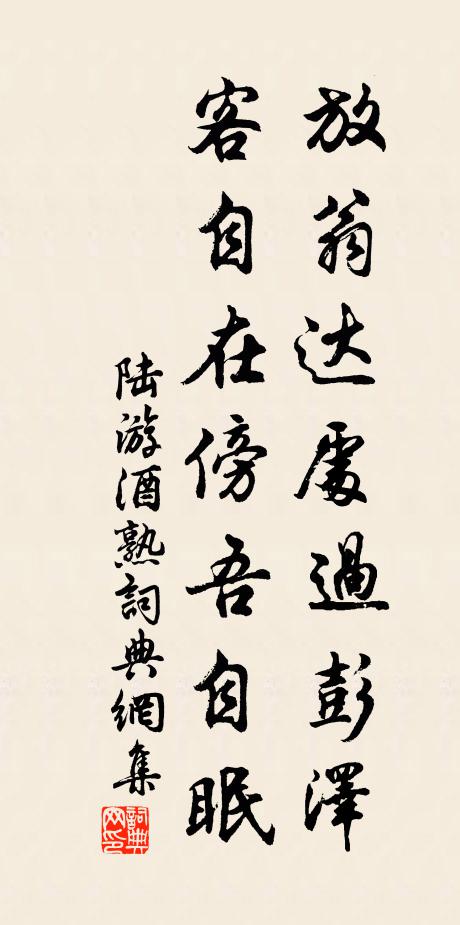 放翁达處過彭澤
客自在傍吾自眠
陆游酒熟詞典網集
詞典网印